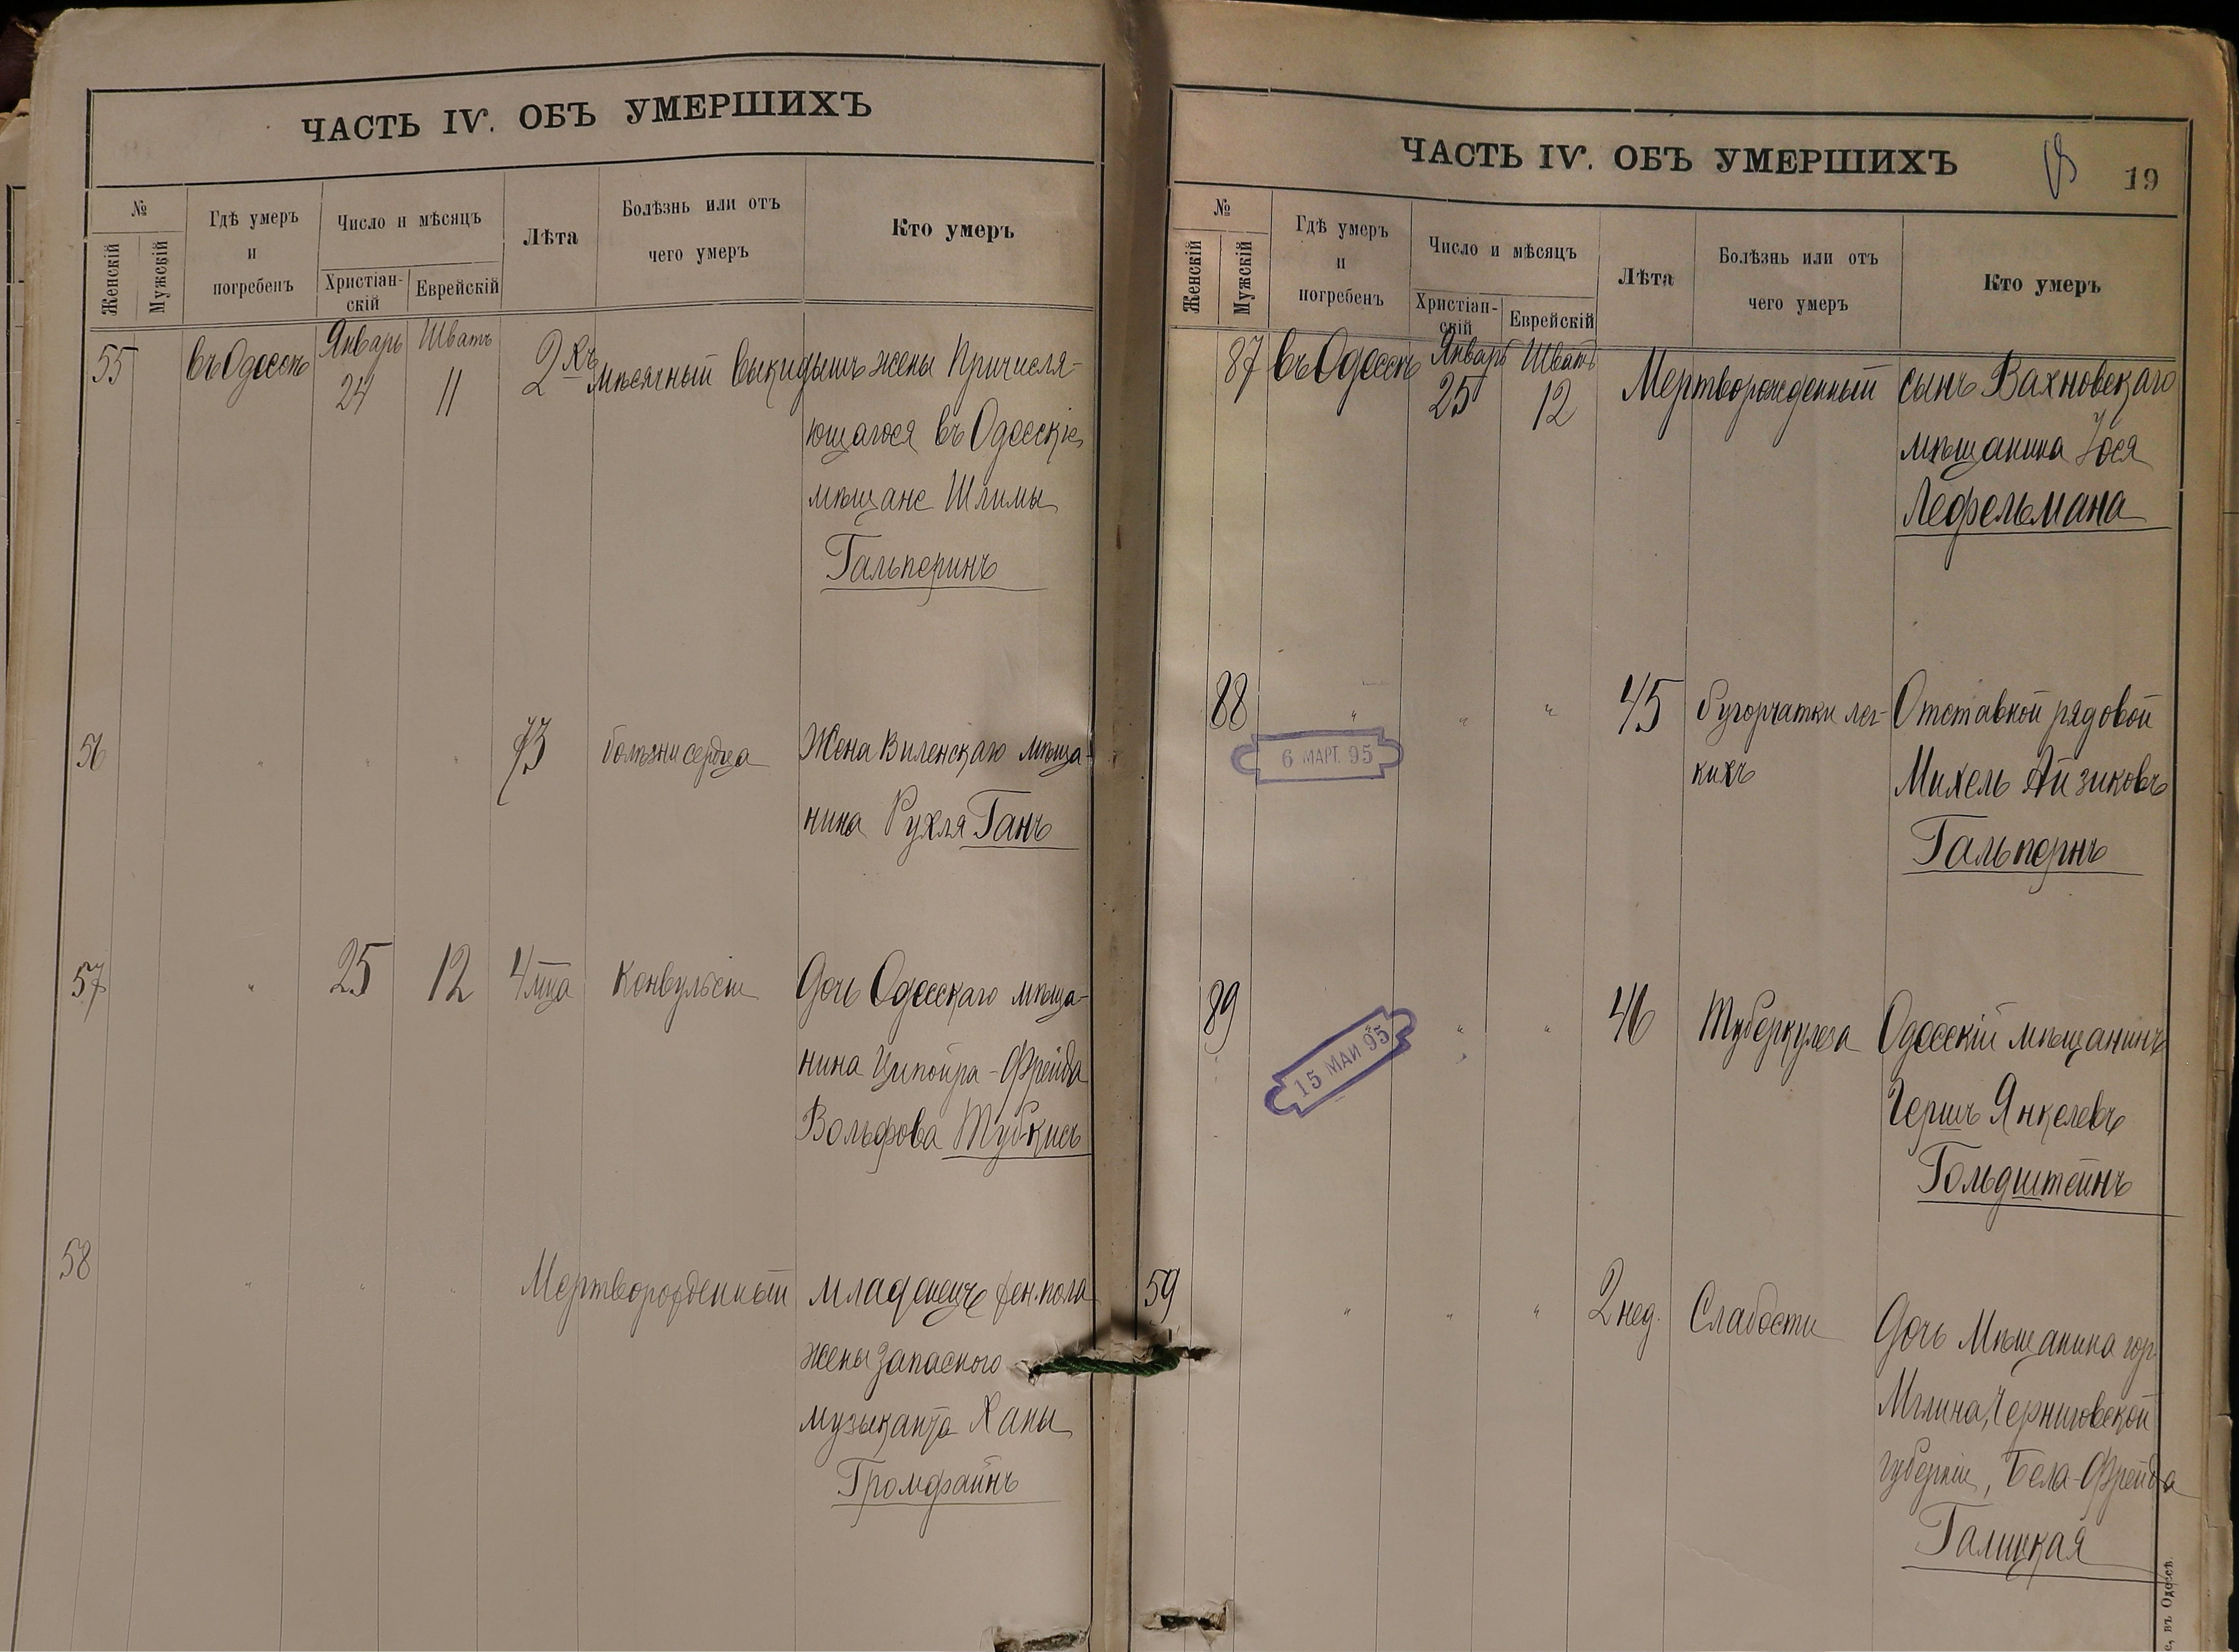 ЧАСТЬ IV. ОБЪ УМЕРШИХЪ
№
Женскій
Мужскій
Гдѣ умеръ
и
погребенъ
Число и мѣсяцъ
Христіан-
скій
Еврейскій
Лѣта
Болѣзнь или отъ
чего умеръ
Кто умеръ
55 въ Одессѣ Январь 24 Шватъ 11 2хъ мѣсячный выкидышъ жены Причисля-
ющагося въ Одесскіе
мѣщане Шлимы
Гальперинъ
56 " " " 73 болѣзни сердца Жена Виленскаго мѣща-
нина Рухля Ганъ
57 " 25 12 4 мца Конвульсіи Дочь Одесскаго мѣща-
нина Ципойра-Фрейда
Вольфова
58 " " " Мертворожденный младенецъ жен. пола
жены запаснаго
музыканта Ханы
Громфайнъ
ЧАСТЬ IV. ОБЪ УМЕРШИХЪ
19
№
Женскій
Мужскій
Гдѣ умеръ
и
погребенъ
Число и мѣсяцъ
Христіан-
скій
Еврейскій
Лѣта
Болѣзнь или отъ
чего умеръ
Кто умеръ
87 въ Одессѣ Январь 25 Шватъ 12 Мертворожденный сынъ Вахновскаго
мѣщанина Іося
Лефельмана
88 " " " 45 бугорчатки лег- Отставной рядовой
кихъ Михель Айзиковъ
6 МАРТ. 95
Гальпернъ
89 " " 46 Туберкулеза Одесскій мѣщанинъ
15 МАИ 95
Гершъ Янкелевъ
Гольдштейнъ
59 " " " 2 нед. Слабости Дочь Мѣщанина гор.
Мглина, Черниговской
губерніи, Бела-Фрейда
Галицкая
въ Одессѣ.